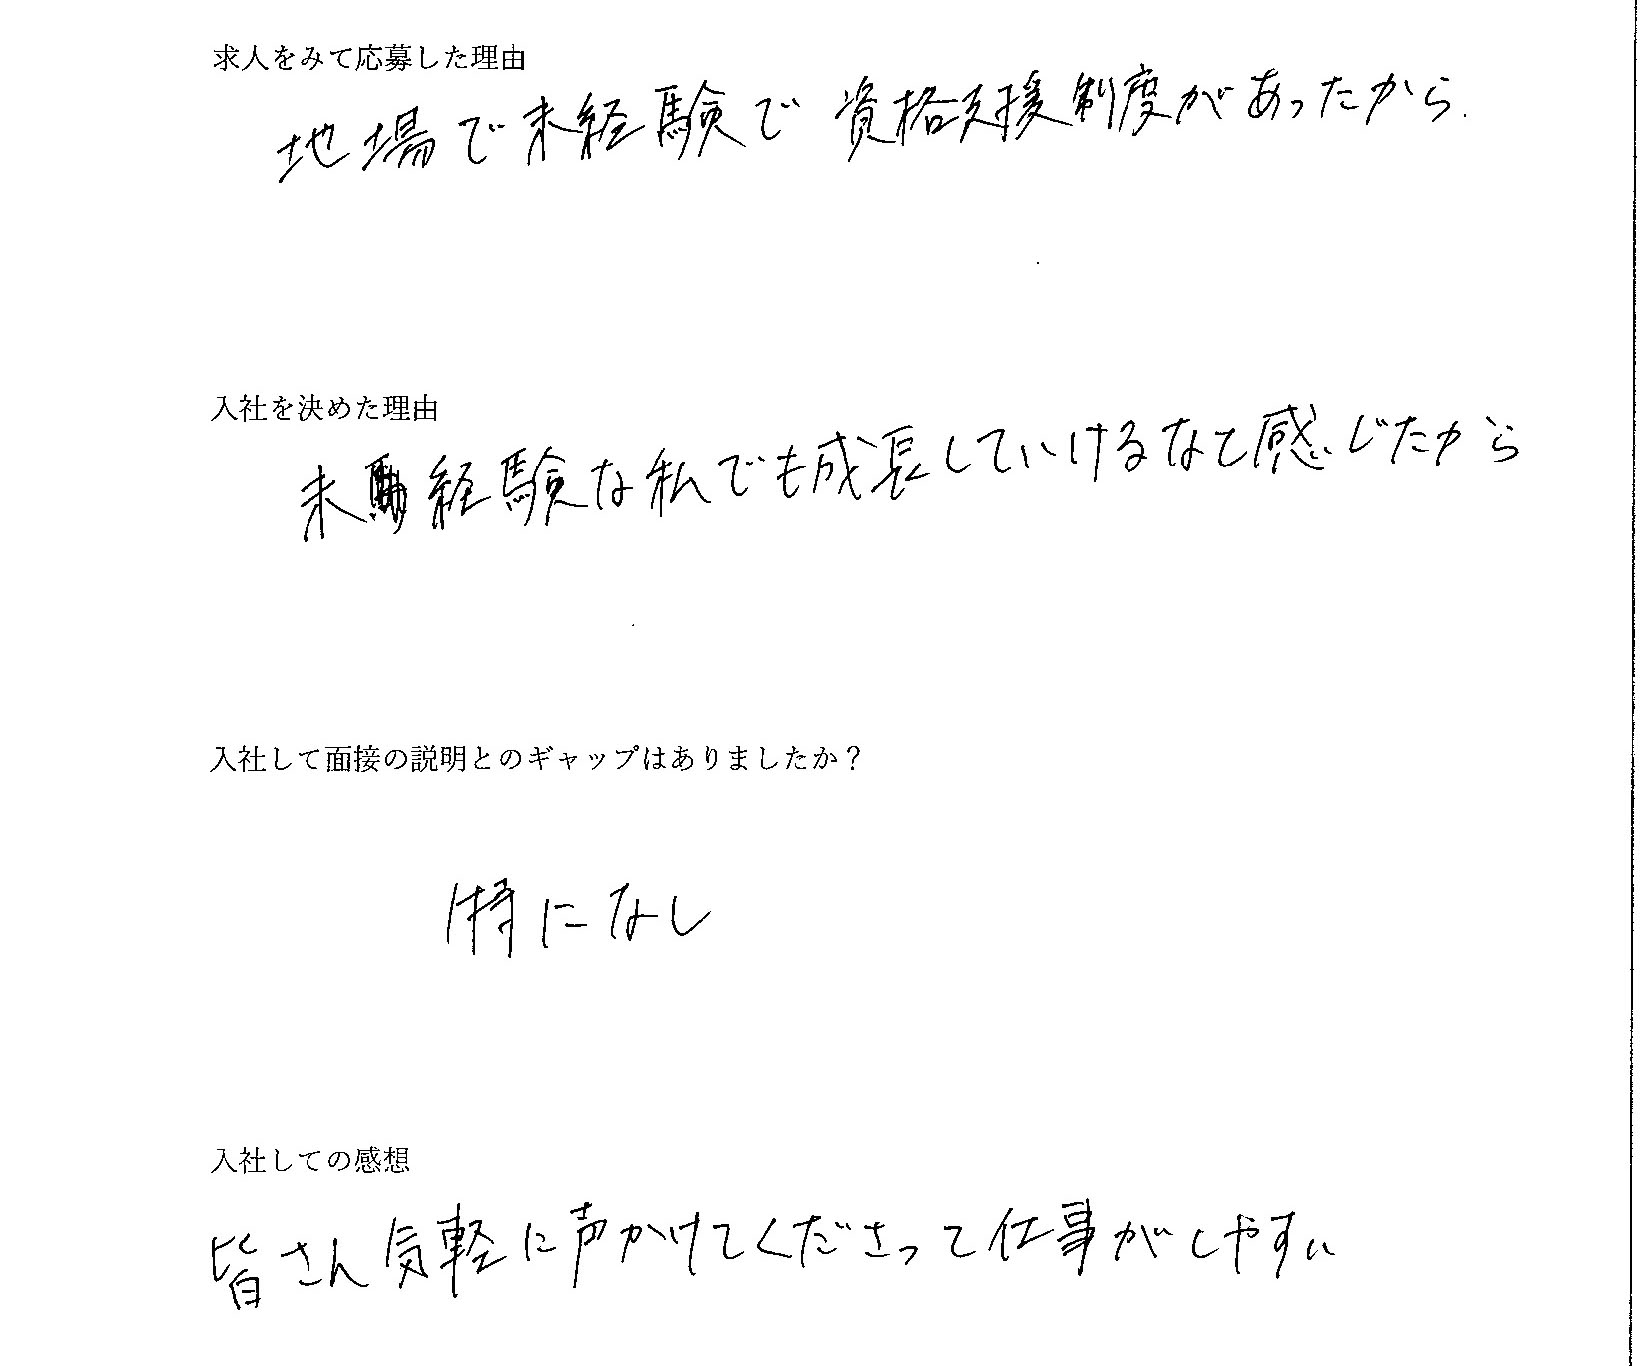 求人をみて応募した理由
地場で未経験で資格支援制度があったから.
入社を決めた理由
未経験な私でも成長していけるなと感じたから
入社して面接の説明とのギャップはありましたか？
特になし
入社しての感想
皆さん気軽に声かけてくださって仕事がしやすい